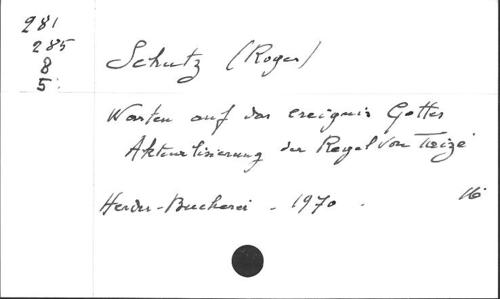 281
285
8
5.
Schutz (Roger)
Warten auf das ereignis Gottes
Aktualisierung der Regel von Teizé
Herder-Bucherei - 1970 .
16